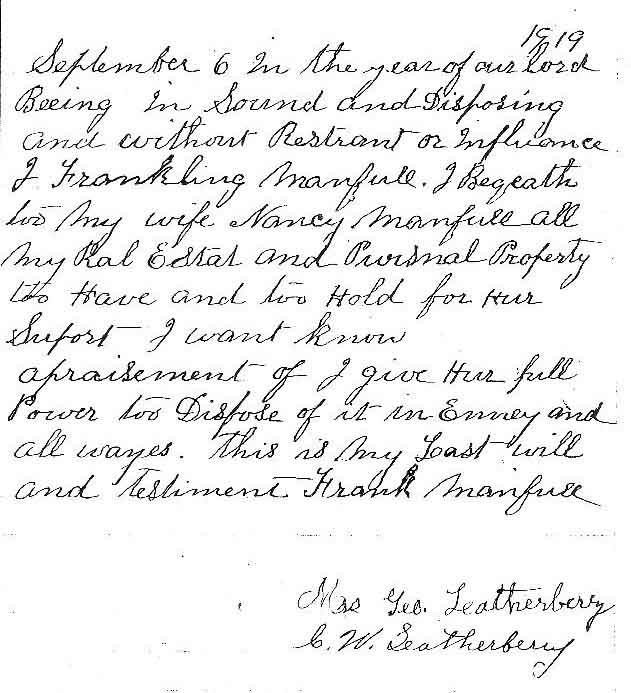 1919
September 6 In the year of our Lord
Beeing In Sound and Disposing
and without Restrant or Influance
I Frankling Manfull. I Beqeath
too My wife Nancy Manfull all
My Ral Estat and Pursnal Property
too Have and too Hold for Hur
Suport I want know
apraisement of I give Hur full
Power too Dispose of it in Enney and
all wayes. this is My Last will
and testiment Frank Manfull
Mrs Geo. Leatherberry
C. W. Leatherberry